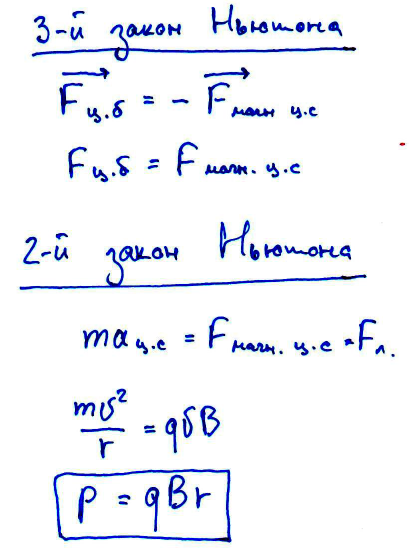 3-й закон Ньютона
F ц.б = - F магн ц.с
F ц.б = F магн. ц.с
2-й закон Ньютона
ma ц.с = F магн. ц.с = F л.
mv²/r = qvB
p = qBr